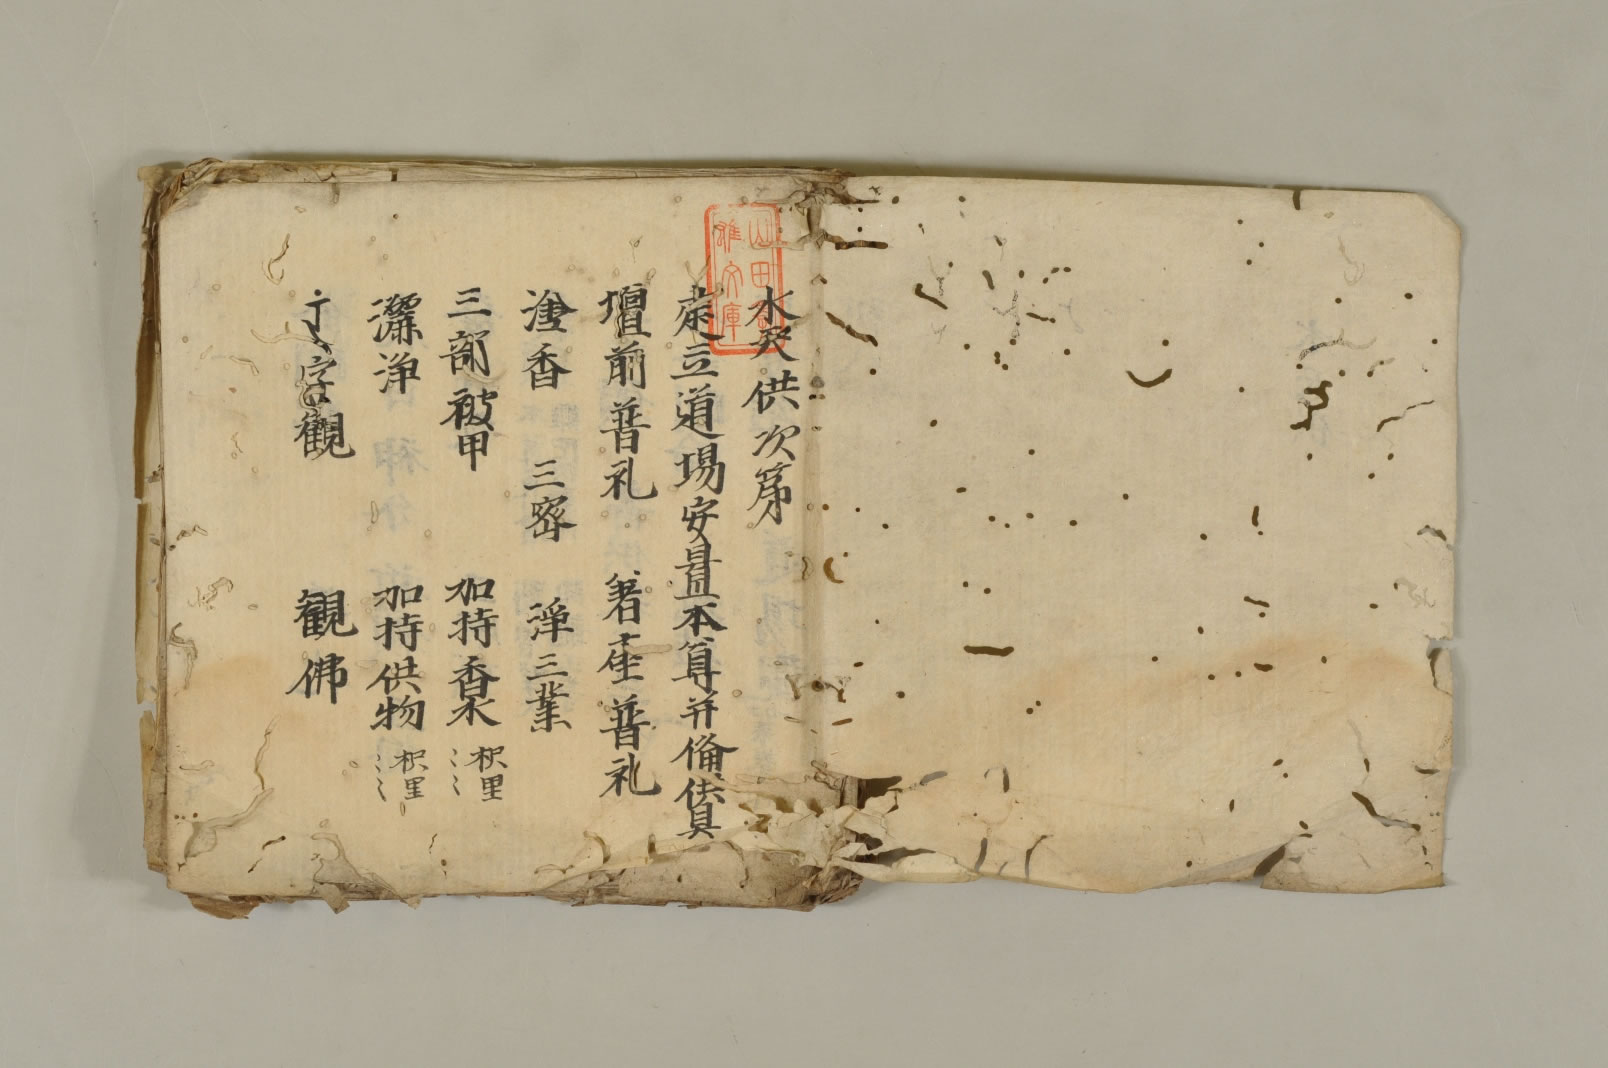 水天供次第
先立道場安置本尊并備供具
壇前普礼 著座普礼
塗香 三密 浄三業
三部被甲 加持香水 枳里〻〻
灑浄 加持供物 枳里〻〻
字観 観佛
山田
雄文庫